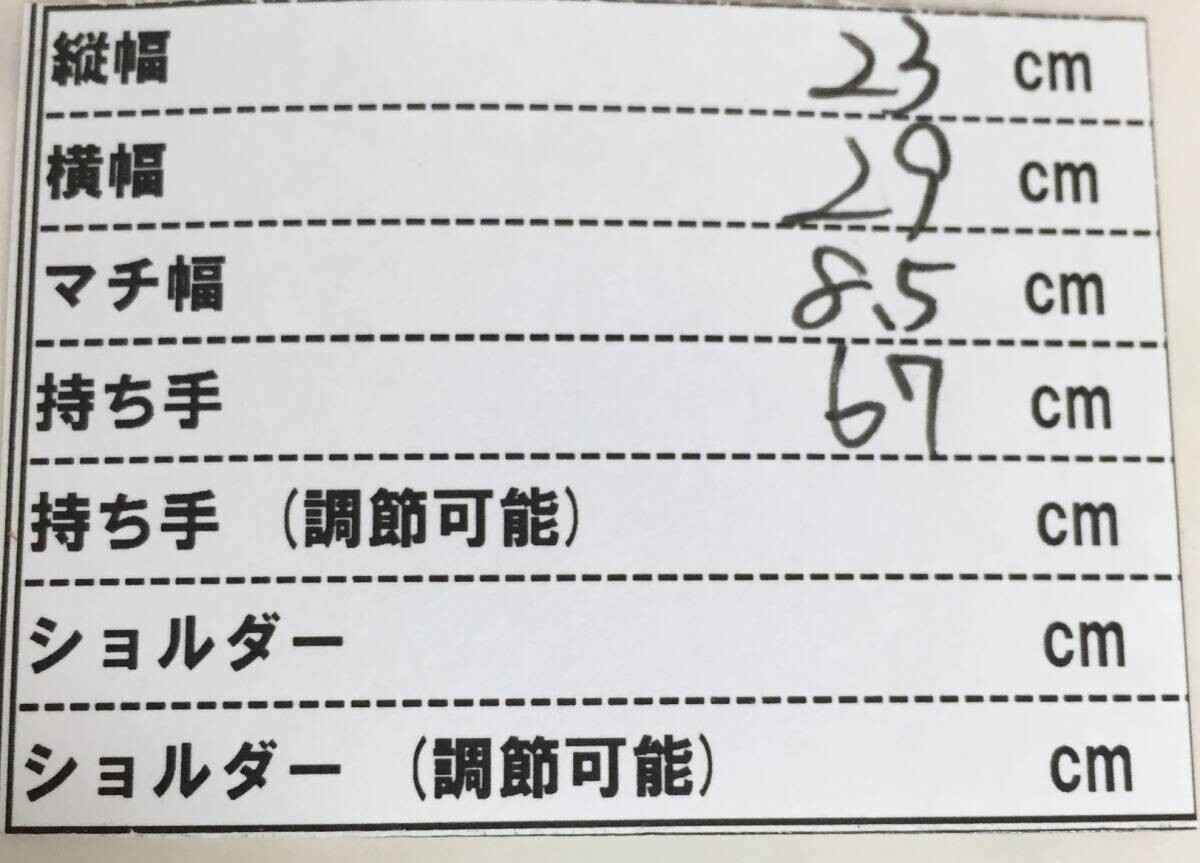 縦幅 23 cm
横幅 29 cm
マチ幅 8.5 cm
持ち手 67 cm
持ち手 (調節可能) cm
ショルダー cm
ショルダー (調節可能) cm